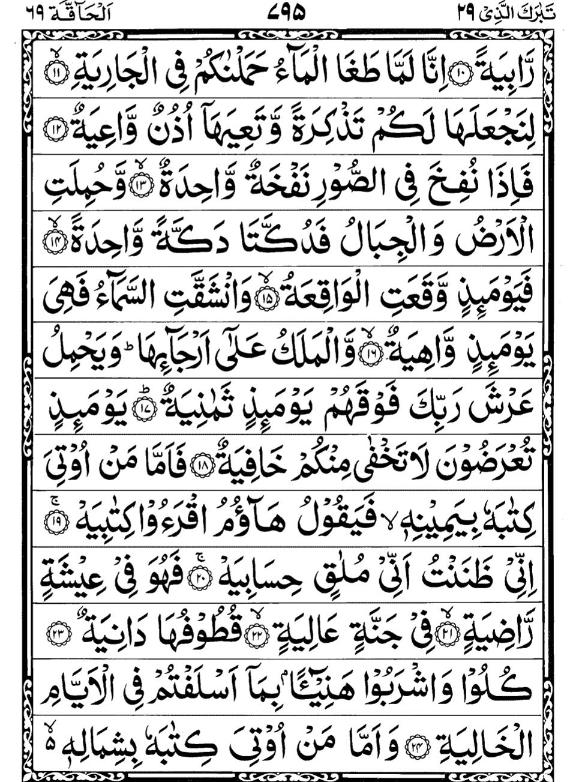 تَبٰرَكَ الَّذِیْ ٢٩ ٧٩٥ اَلْحَآقَّة ٦٩
رَّابِیَةً ﴿١٠﴾ اِنَّا لَمَّا طَغَا الْمَآءُ حَمَلْنٰكُمْ فِی الْجَارِیَةِ ﴿١١﴾ۙ
لِنَجْعَلَهَا لَكُمْ تَذْكِرَةً وَّتَعِیَهَاۤ اُذُنٌ وَّاعِیَةٌ ﴿١٢﴾
فَاِذَا نُفِخَ فِی الصُّوْرِ نَفْخَةٌ وَّاحِدَةٌ ﴿١٣﴾ۙ وَّحُمِلَتِ
الْاَرْضُ وَالْجِبَالُ فَدُكَّتَا دَكَّةً وَّاحِدَةً ﴿١٤﴾ۙ
فَیَوْمَىِٕذٍ وَّقَعَتِ الْوَاقِعَةُ ﴿١٥﴾ۙ وَانْشَقَّتِ السَّمَآءُ فَهِیَ
یَوْمَىِٕذٍ وَّاهِیَةٌ ﴿١٦﴾ۙ وَّالْمَلَكُ عَلٰۤی اَرْجَآىِٕهَا ؕ وَیَحْمِلُ
عَرْشَ رَبِّكَ فَوْقَهُمْ یَوْمَىِٕذٍ ثَمٰنِیَةٌ ﴿١٧﴾ؕ یَوْمَىِٕذٍ
تُعْرَضُوْنَ لَا تَخْفٰی مِنْكُمْ خَافِیَةٌ ﴿١٨﴾ فَاَمَّا مَنْ اُوْتِیَ
كِتٰبَهٗ بِیَمِیْنِهٖ ۙ فَیَقُوْلُ هَآؤُمُ اقْرَءُوْا كِتٰبِیَهْ ﴿١٩﴾ۚ
اِنِّیْ ظَنَنْتُ اَنِّیْ مُلٰقٍ حِسَابِیَهْ ﴿٢٠﴾ۚ فَهُوَ فِیْ عِیْشَةٍ
رَّاضِیَةٍ ﴿٢١﴾ۙ فِیْ جَنَّةٍ عَالِیَةٍ ﴿٢٢﴾ۙ قُطُوْفُهَا دَانِیَةٌ ﴿٢٣﴾
كُلُوْا وَاشْرَبُوْا هَنِیْٓـًٔۢا بِمَاۤ اَسْلَفْتُمْ فِی الْاَیَّامِ
الْخَالِیَةِ ﴿٢٤﴾ وَاَمَّا مَنْ اُوْتِیَ كِتٰبَهٗ بِشِمَالِهٖ ۙ۬